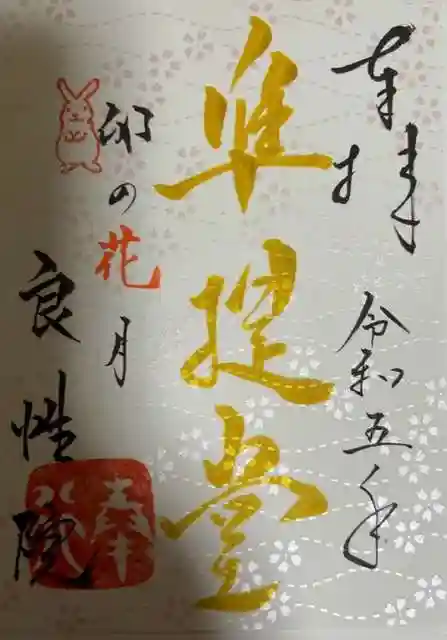 奉拝
令和五年
准提堂
卯の花月
良性院